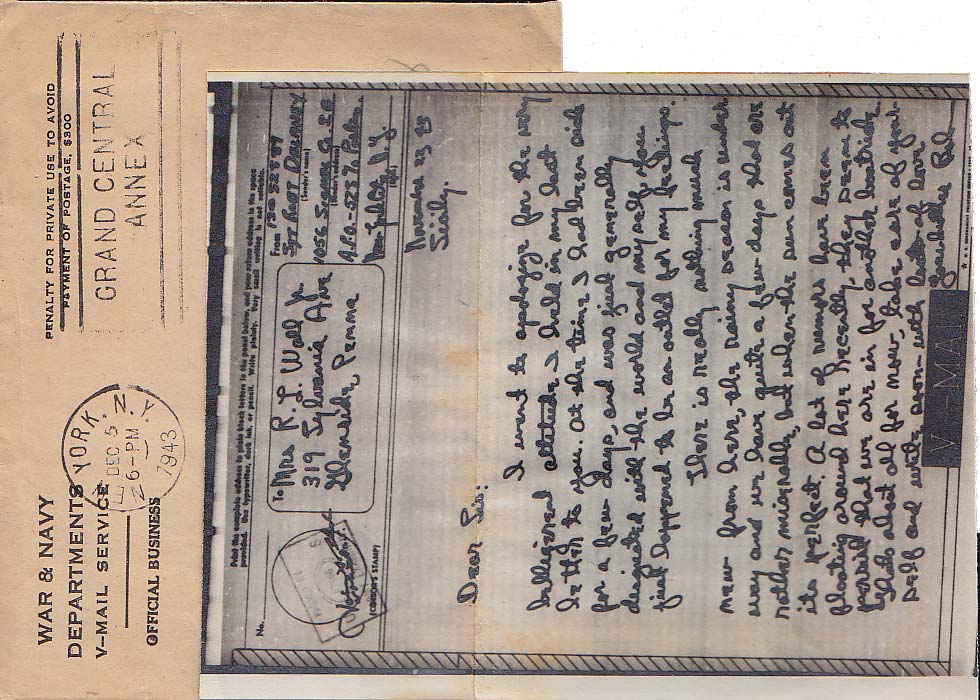 WAR & NAVY
DEPARTMENTS
V-MAIL SERVICE
OFFICIAL BUSINESS
YORK, N.Y.
DEC 5
6-PM
1943
PENALTY FOR PRIVATE USE TO AVOID
PAYMENT OF POSTAGE, $300
GRAND CENTRAL
ANNEX
Print the complete address in plain block letters in the panel below, and your return address in the space
provided. Use typewriter, dark ink, or pencil. Write plainly. Very small writing is not suitable.
No.
(CENSOR'S STAMP)
To Mrs R. L. Wall Jr.
319 Sylvania Ave
Glenside, Penna
From
Sgt Root
1056 G.S.
A.P.O.-528 % P.M.
New York City N.Y.
November 23, 43
Sicily.
Dear Sis:
I want to apologize for the very
belligerent attitude I held in my last
letter to you. At the time I had been sick
for a few days, and was just generally
disgusted with the world and myself. You
just happened to be an outlet for my feelings.
There is really nothing much
new from here, the rainy season is under
way and we have quite a few days that are
rather miserable, but when the sun comes out
its perfect. A lot of rumors have been
floating around here recently, they seem to
portend that we are in for another boatride.
Thats about all for now, take care of your
self and write soon - with lots of love
V-MAIL